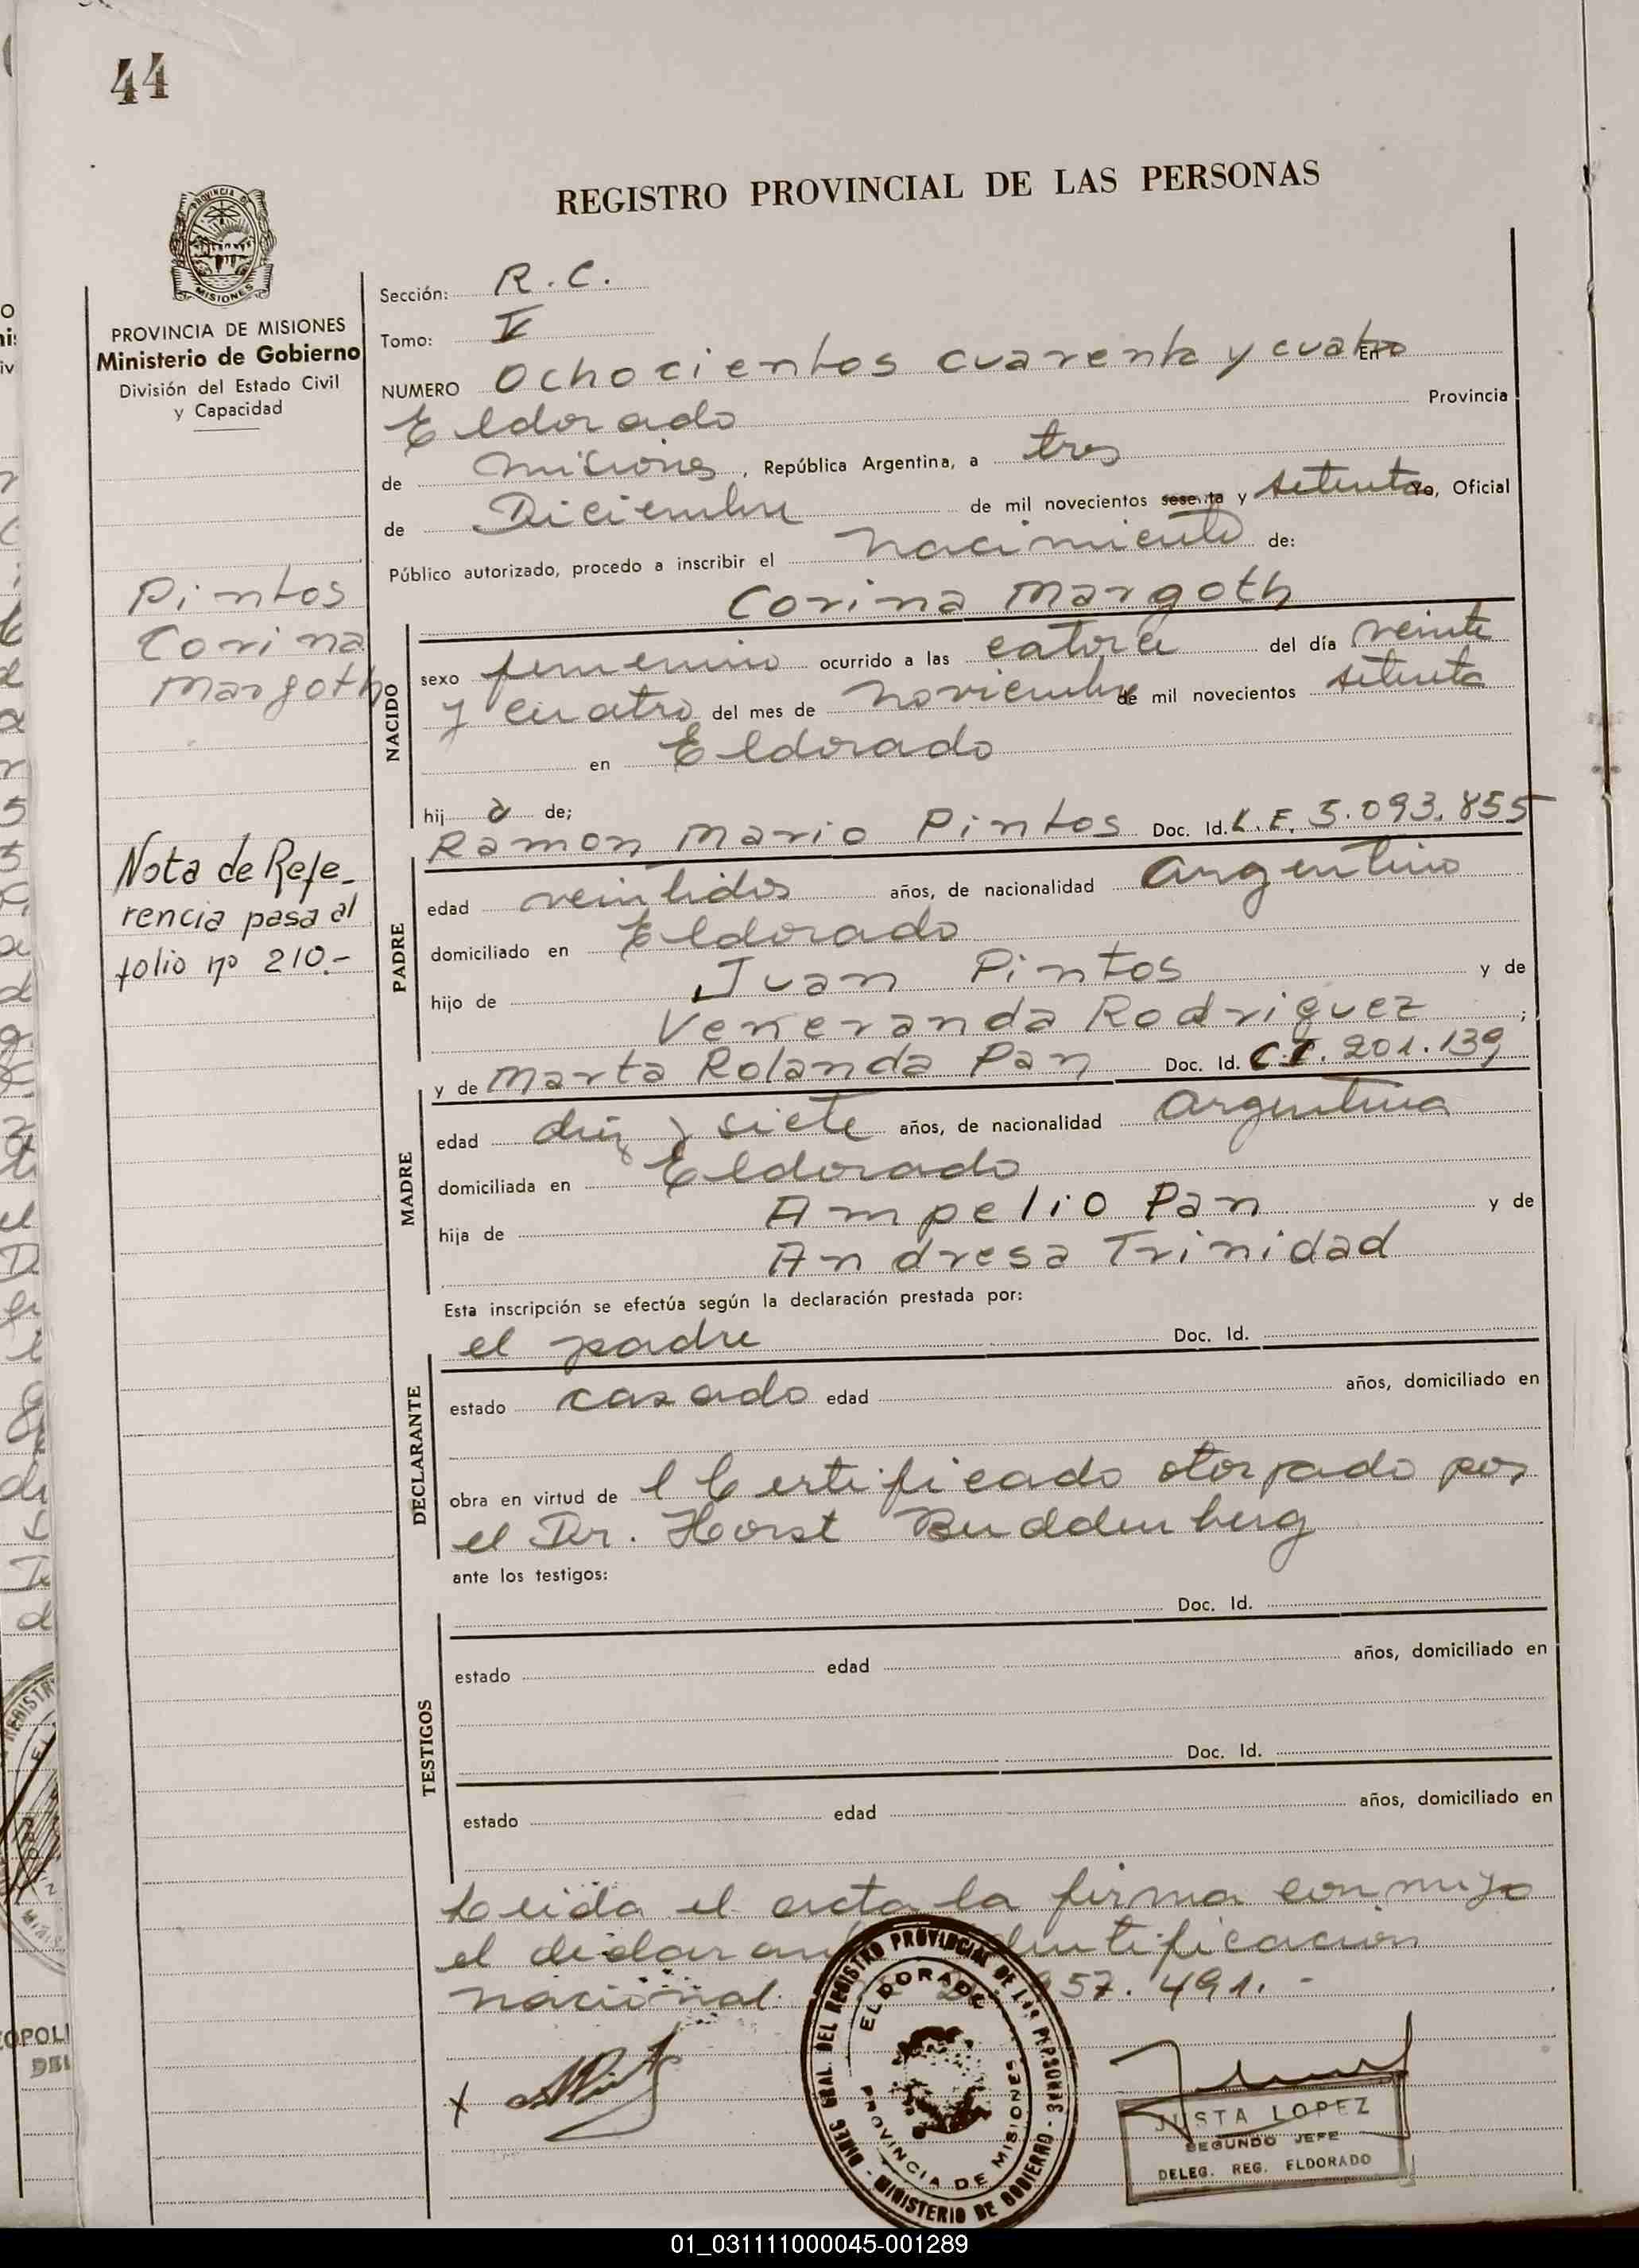 44
REGISTRO PROVINCIAL DE LAS PERSONAS
PROVINCIA DE MISIONES
Ministerio de Gobierno
División del Estado Civil
y Capacidad
Pintos
Corina
Margoth
Nota de Refe-
rencia pasa al
folio nº 210.-
Sección: R.C.
Tomo: V
NUMERO Ochocientos cuarenta y cuatro En
Eldorado Provincia
de Misiones, República Argentina, a tres
de Diciembre de mil novecientos sesenta y setenta Yo, Oficial
Público autorizado, procedo a inscribir el nacimiento de:
Corina Margoth
NACIDO
sexo femenino ocurrido a las catorce del día veinte
y cuatro del mes de noviembre de mil novecientos setenta
en Eldorado
hij a de;
Ramon Mario Pintos Doc. Id. L.E. 5.093.855
PADRE
edad veintidos años, de nacionalidad argentino
domiciliado en Eldorado
hijo de Juan Pintos y de
Veneranda Rodriguez ;
y de Marta Rolanda Pan Doc. Id. C.I. 201.139
MADRE
edad diez y siete años, de nacionalidad argentina
domiciliada en Eldorado
hija de Ampelio Pan y de
Andresa Trinidad
Esta inscripción se efectúa según la declaración prestada por:
el padre Doc. Id.
DECLARANTE
estado casado edad años, domiciliado en
obra en virtud de l Certificado otorgado por
el Dr. Horst Buddenberg
ante los testigos:
Doc. Id.
TESTIGOS
estado edad años, domiciliado en
Doc. Id.
estado edad años, domiciliado en
Leida el acta la firma conmigo
el
nacional 957.491.-
DIREC. GRAL. DEL REGISTRO PROVINCIAL DE LAS PERSONAS - MINISTERIO DE GOBIERNO -
ELDORADO
PROVINCIA DE MISIONES
JUSTA LOPEZ
SEGUNDO JEFE
DELEG. REG. ELDORADO
01_031111000045-001289